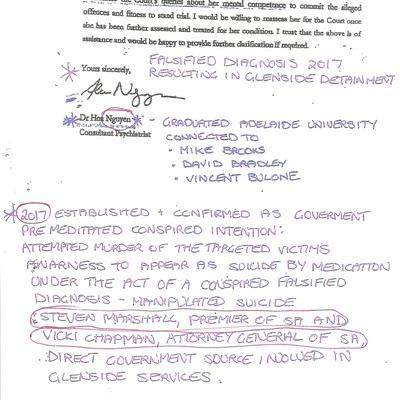 the Court's queries about her mental competence to commit the alleged
offences and fitness to stand trial. I would be willing to reassess her for the Court once
she has been further assessed and treated for her condition. I trust that the above is of
assistance and would be happy to provide further clarification if required.
Yours sincerely,
FALSIFIED DIAGNOSIS 2017
RESULTING IN GLENSIDE DETAINMENT
Dr Hoa Nguyen
Consultant Psychiatrist
- GRADUATED ADELAIDE UNIVERSITY
CONNECTED TO
• MIKE BROOKS
• DAVID BRADLEY
• VINCENT BULONE
* 2017 ESTABLISHED + CONFIRMED AS GOVERMENT
PREMEDITATED CONSPIRED INTENTION:
ATTEMPTED MURDER OF THE TARGETED VICTIMS
AWARNESS TO APPEAR AS SUICIDE BY MEDICATION
UNDER THE ACT OF A CONSPIRED FALSIFIED
DIAGNOSIS - MANIPULATED SUICIDE
STEVEN MARSHALL, PREMIER OF SA AND
VICKI CHAPMAN, ATTORNEY GENERAL OF SA,
DIRECT GOVERNMENT SOURCE INVOLVED IN
GLENSIDE SERVICES.